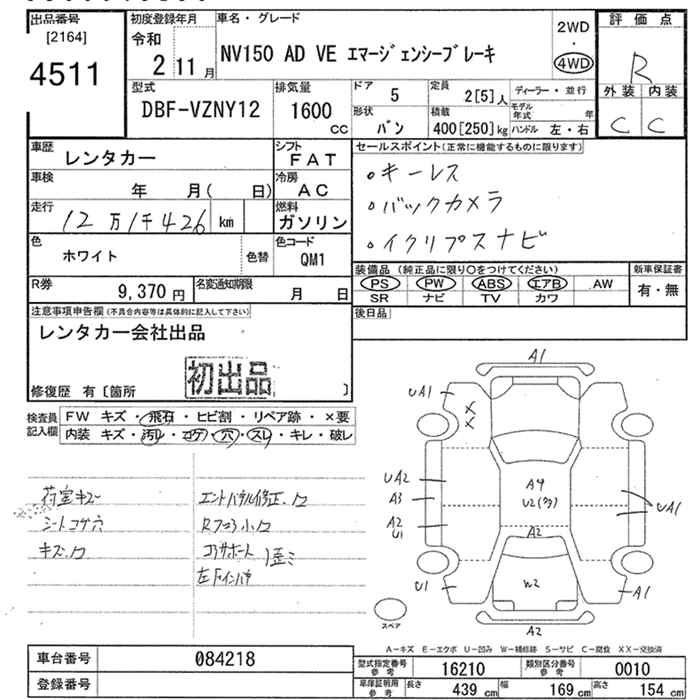 出品番号
[2164]
4511
初度登録年月
令和
2年11月
車名・グレード
NV150 AD VE エマージェンシーブレーキ
2WD
・
4WD
評価点
R
外装 内装
C C
型式
DBF-VZNY12
排気量
1600
cc
ドア
5
定員
2[5]人
ディーラー・並行
形状
バン
積載
400[250]kg
モデル年式 年
ハンドル 左・右
車歴
レンタカー
シフト
FAT
車検
年 月( 日)
冷房
AC
走行
12万1千426 km
燃料
ガソリン
色
ホワイト
色替
色コード
QM1
R券
9,370 円
名変通知期限
月 日
セールスポイント(正常に機能するものに限ります)
・キーレス
・バックカメラ
・イクリプスナビ
装備品(純正品に限り○をつけてください)
PS PW ABS エアB AW
SR ナビ TV カワ
新車保証書
有・無
後日品
注意事項申告欄(不具合内容等は具体的に記入して下さい)
レンタカー会社出品
初出品
修復歴 有〔箇所 〕
検査員記入欄
FW キズ・飛石・ヒビ割・リペア跡・×要
内装 キズ・汚レ・コゲ・穴・スレ・キレ・破レ
荷室キズ
シートコゲ穴
キズ
コアサポート歪ミ
A1
UA1
X
X
UA2
A3
A2
U1
U1
A4
U2(多)
A2
W2
UA1
A1
A2
スペア
A-キズ E-エクボ U-凹み W-補修跡 S-サビ C-腐食 XX-交換済
車台番号
084218
登録番号
型式指定番号
参考
16210
類別区分番号
参考
0010
車庫証明用
参考
長さ 439 cm
幅 169 cm
高さ 154 cm